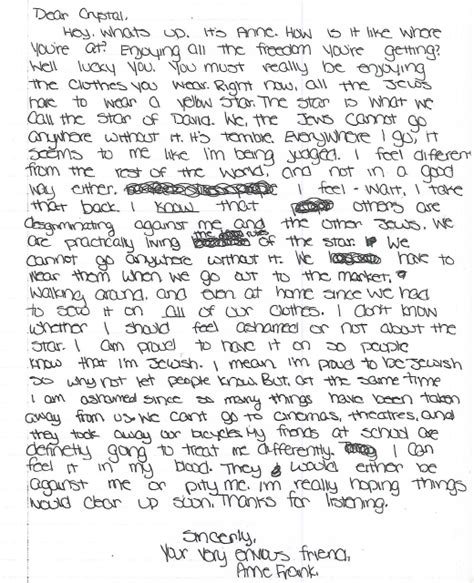 Dear Crystal,
Hey. Whats up. It's Anne. How is it like where
you're at? Enjoying all the freedom you're getting?
Well lucky you. You must really be enjoying
the clothes you wear. Right now, all the Jews
have to wear a yellow star. The star is what we
call the star of David. We, the Jews cannot go
anywhere without it. It's terrible. Everywhere I go, it
seems to me like I'm being judged. I feel different
from the rest of the world, and not in a good
way either. I feel - wait, I take
that back. I know that others are
against me and the other Jews. We
are practically living of the star. We
cannot go anywhere without it. We have to
wear them when we go out to the market,
walking around, and even at home since we had
to sew it on all of our clothes. I don't know
whether I should feel ashamed or not about the
star. I am proud to have it on so people
know that I'm Jewish. I mean I'm proud to be Jewish
so why not let people know. But, at the same time
I am ashamed since so many things have been taken
away from us. We can't go to cinemas, theatres, and
they took away our bicycles. My friends at school are
definetly going to treat me differently. I can
feel it in my blood. They would either be
against me or pity me. I'm really hoping things
would clear up soon. Thanks for listening.
Sincerly,
Your very envious friend,
Anne Frank.